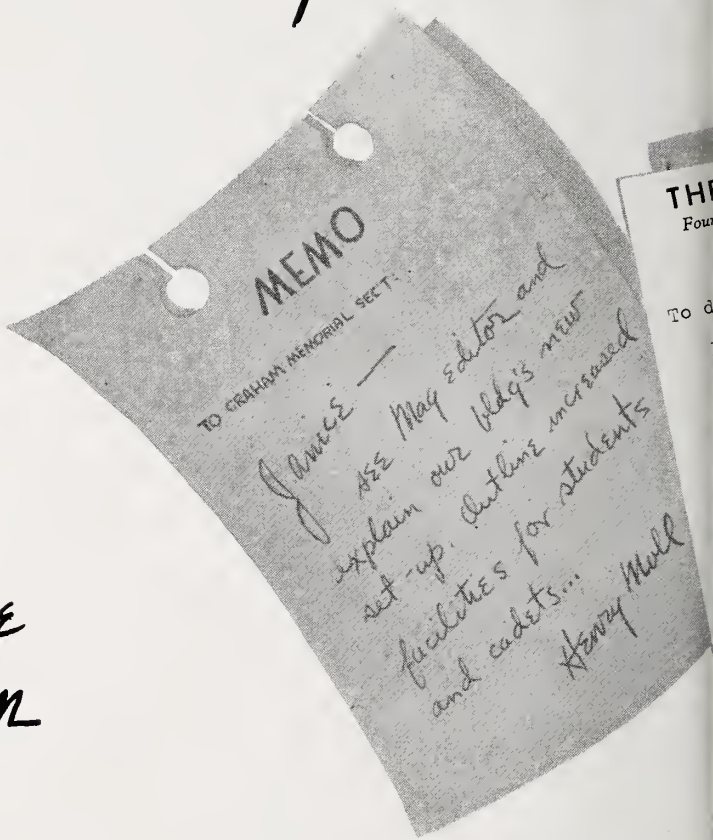 MEMO
TO GRAHAM MEMORIAL SECT:
Janice —
see Mag editor and
explain our bldg's new
set-up. Outline increased
facilities for students
and cadets...
Henry Moll
THE
Foun
To d